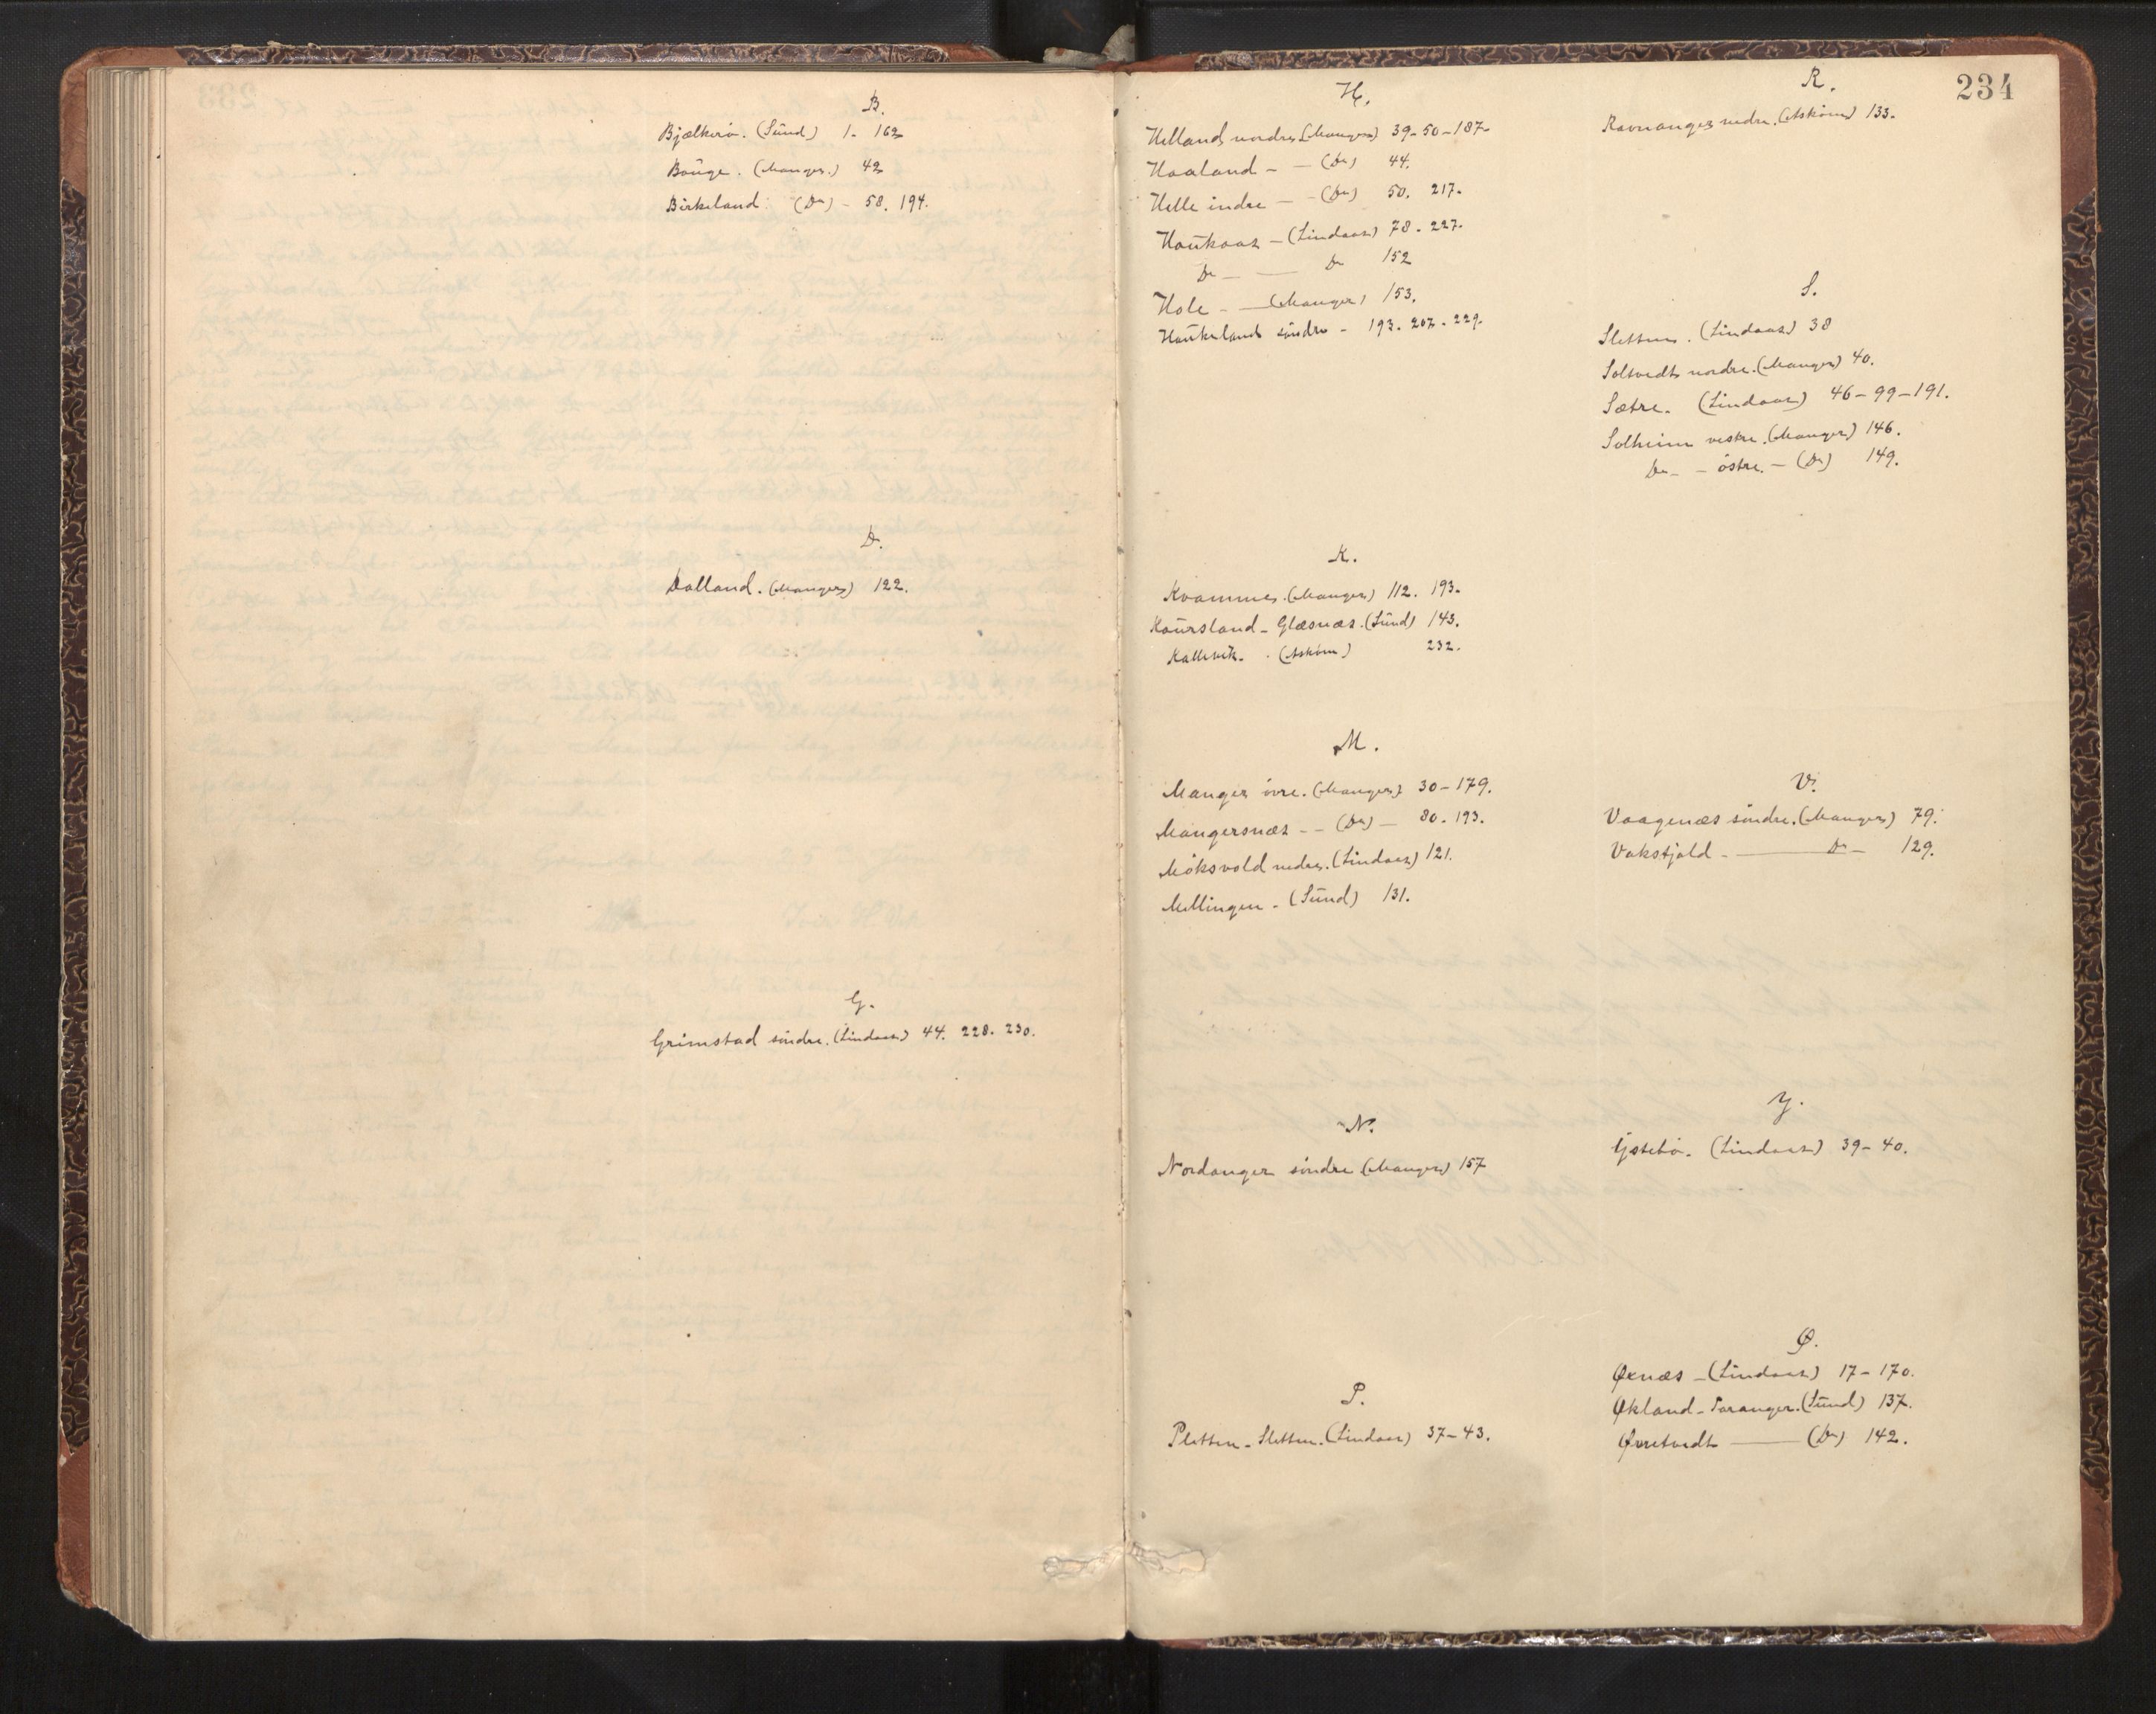 B.
Bjælkerö. (Sünd) 1. 162
Böüge. (Manger.) 42
Birkeland. (Do) - 58. 194.
D.
Dalland. (Manger) 122.
G.
Grimstad söndre. (Lindaas) 44. 228. 230.
234
H.
Helland nordre. (Manger) 39-50-187-
Haaland - - (Do) 44.
Helle indre - - (Do) 50. 217.
Haükaas - (Lindaas) 78. 227.
Do - - Do 152
Hole - - (Manger) 153.
Haükeland söndre - 193. 207. 229.
K.
Kvammes. (Manger) 112. 193.
Kaürsland - Glæsnæs. (Sünd) 143.
Kallevik. (Asköen) 232.
M.
Manger övre. (Manger) 30-179.
Mangersnæs - - (Do) - 80. 193.
Möksvold nedre. (Lindaas) 121.
Mellingen - (Sünd) 131.
N.
Nordanger söndre (Manger) 157
P.
Pletten - Sletten. (Lindaas) 37-43.
R.
Ravnanger nedre. (Asköen) 133.
S.
Sletten. (Lindaas) 38
Soltvedt nordre. (Manger) 40.
Sætre. (Lindaas) 46-99-191.
Solheim vestre. (Manger) 146.
Do - - östre. - (Do) 149.
V.
Vaagenæs söndre. (Manger) 79.
Vakstjold - - Do - 129.
Y.
Ystebö. (Lindaas) 39-40.
Ø.
Øxnæs - (Lindaas) 17-170.
Økland - Toranger. (Sünd) 137.
Øvretvedt - (Do) 142.